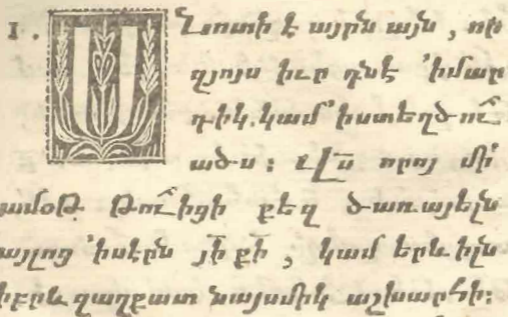 1. ԱՆոտի է այրն այն , որ
զյոյս իւր դնէ ՚ի մար
դիկ. կամ ՚ի ստեղծու՟
ածս : Վ՟ս որոյ մի՛
ամօթ թու՟իցի քեզ ծառայելն
այլոց ՚ի սէրն յ՟ի ք՟ի , կամ երևիլն
իբրև զաղքատ յայսմիկ աշխարհի: